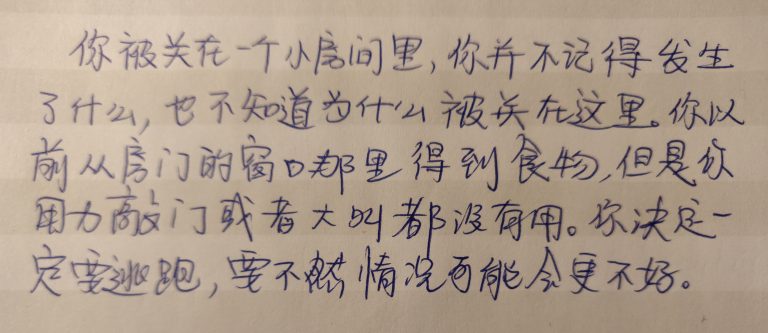 你被关在一个小房间里，你并不记得发生
了什么，也不知道为什么被关在这里。你以
前从房门的窗口那里得到食物，但是你
用力敲门或者大叫都没有用。你决定一
定要逃跑，要不然情况可能会更不好。